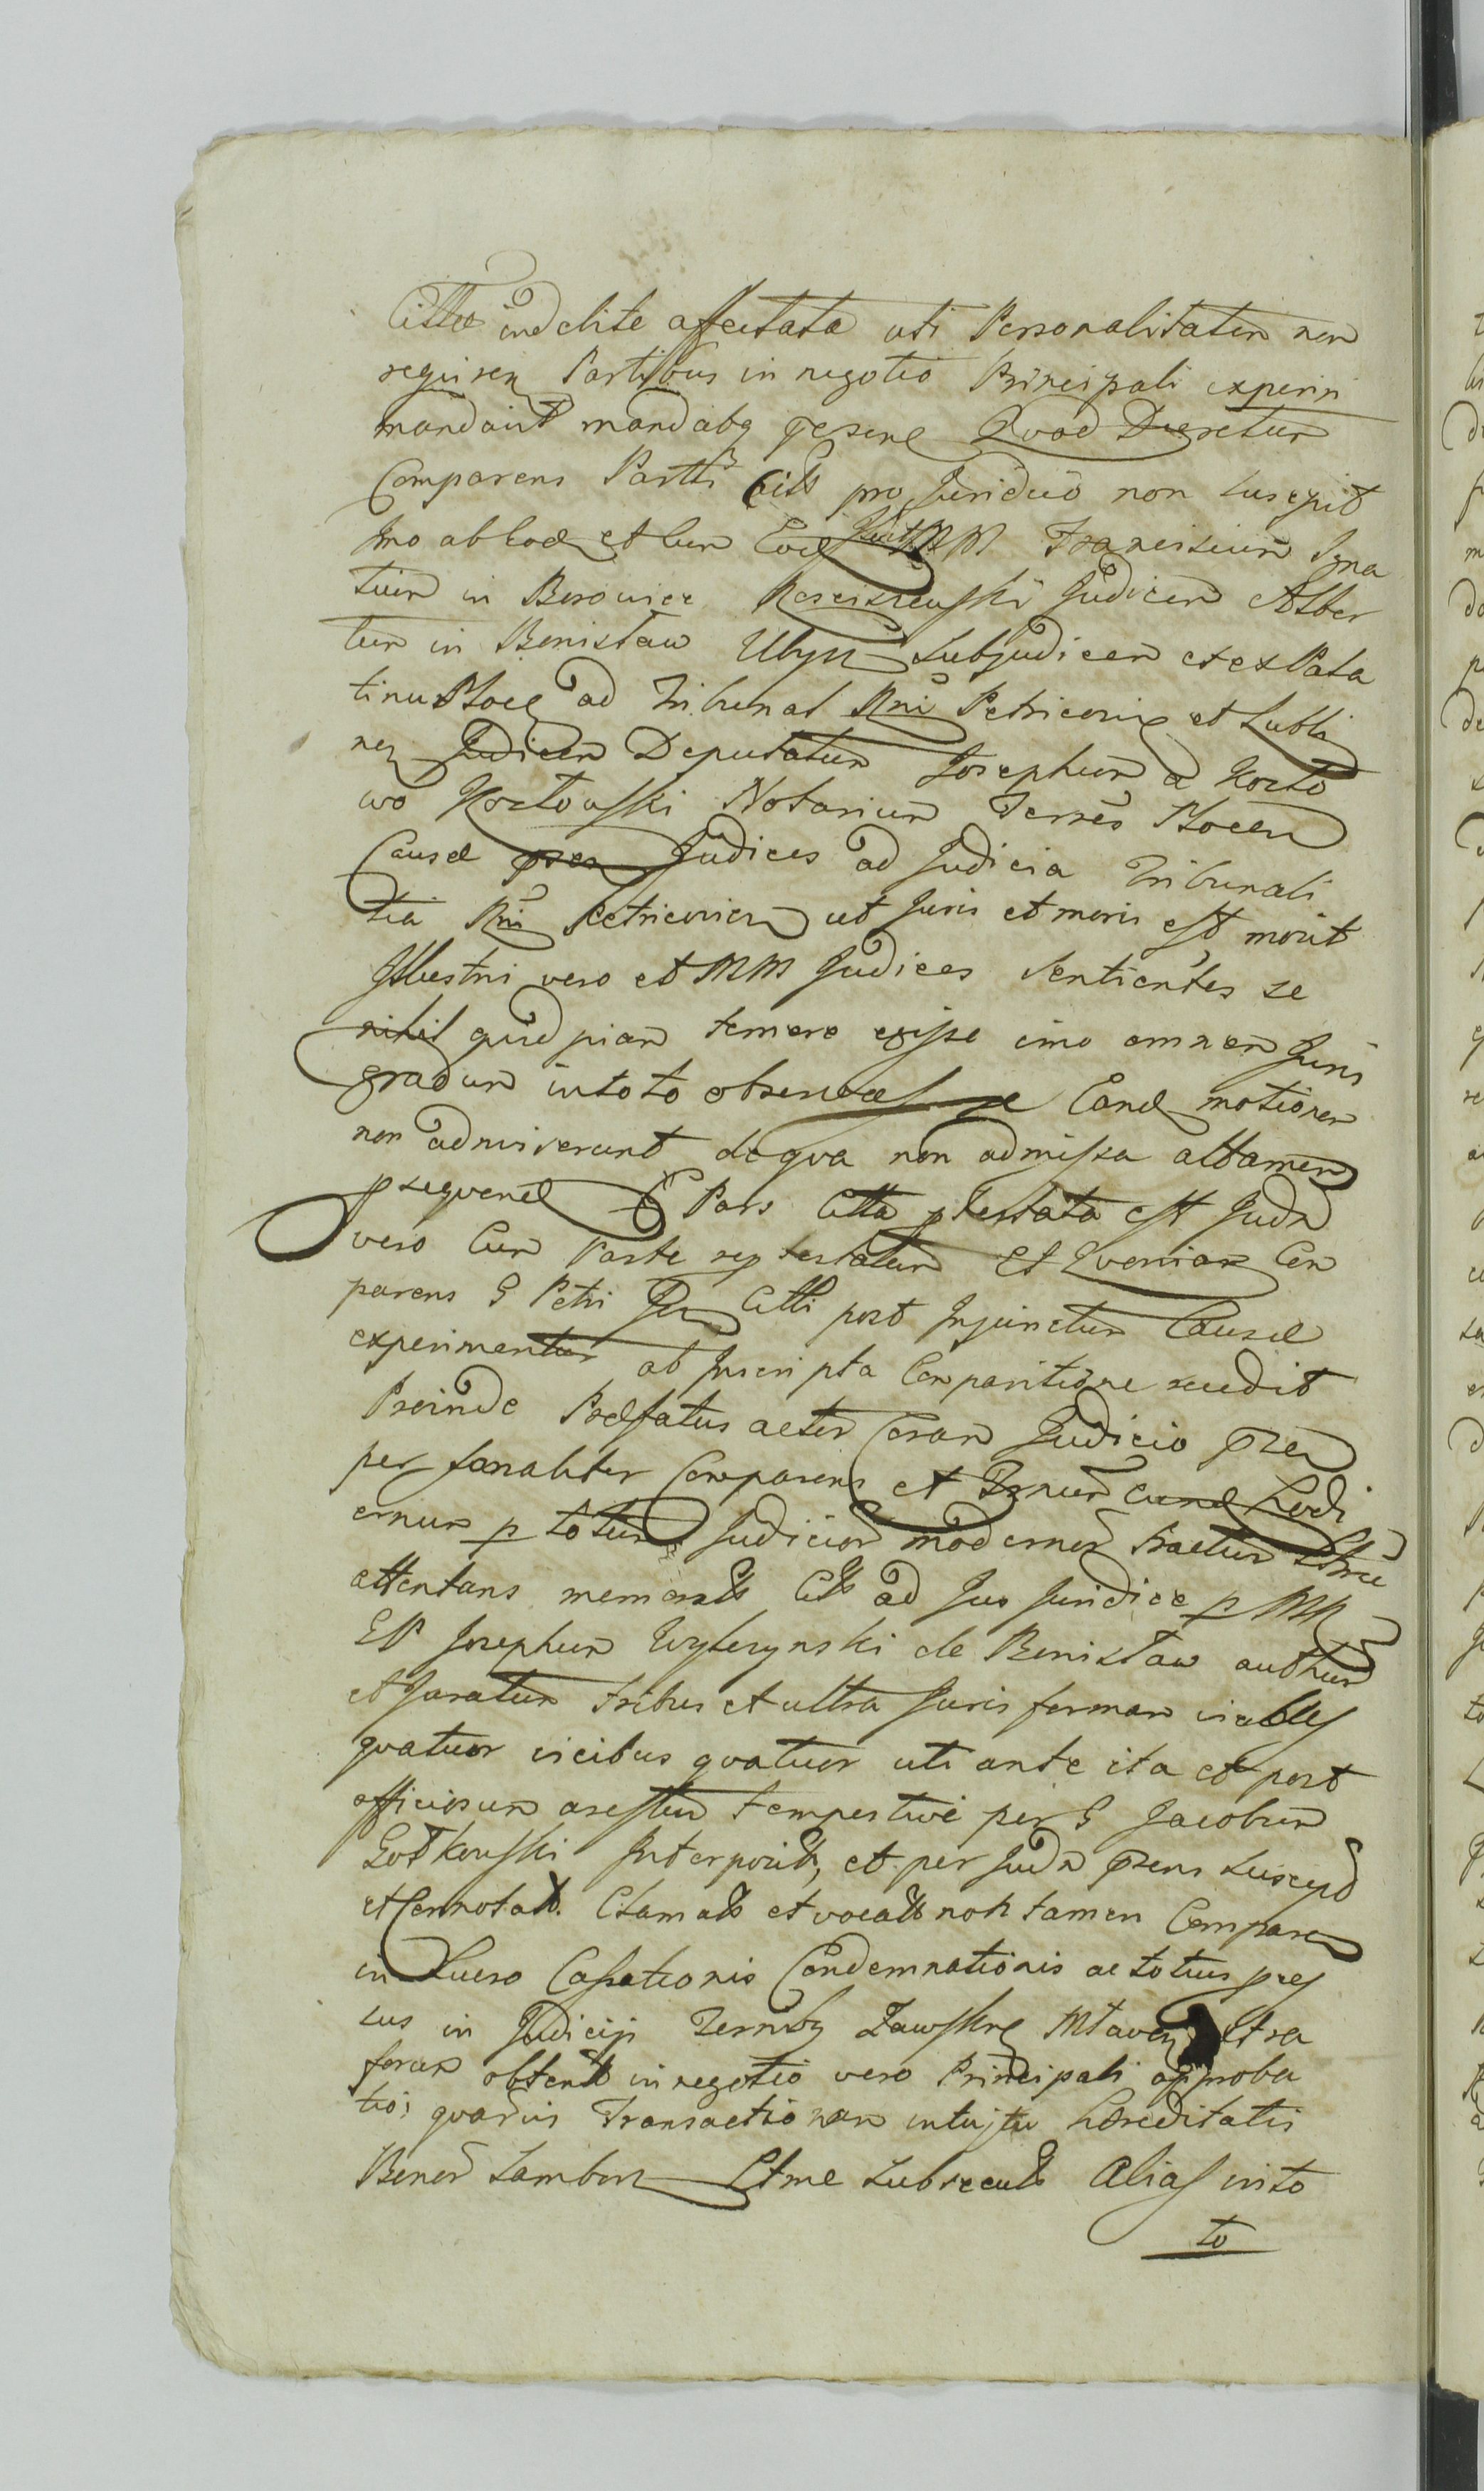 Cittae indebite affectata uti Personalitatem non
requiren Partibus in negotio Principali experiri
mandavit mandabq Quod Decretum
Comparens Partis Citt pro Juridico non suscepit
Imo ab Eod et cum Eod Illust MM Franciscum Igna
tium in Borowice Kosciszewski Judicem Alber
tum in Benistaw Ulysz Subjudicem et ex Pala
tinu Ploce ad Tribunal Rni Petricovie et Lubli
nen Judicem Deputatum Josephum a Kozto
wo Koztowski Notarium Terres Plocen
Causae Judices ad Judicia Tribunali
tia Rni Petricovien ut Juris et moris est movit
Illustri vero et MM Judices Sentientes se
nihil quidpiam temere egisse imo omnem Juris
gradum in toto observasse Eand motionem
non admiserunt de qva non admissa attamen
pseqvend Pars Citta ptestata est Judm
vero Cum Parte reptestatum Et Qvoniam Com
parens G Petri Citti post Injunctum Causae
experimentum ab Inscripta Comparitione recedit
Proinde Praefatus actor Coram Judicio
personaliter Comparens et Trnum eund Hodi
ernum p totum Judicior modernor tractum
attentans memoratt Citt ad Jus Juridice p MM
Josephum Wyterzynski de Benistaw authum
et Juratum tribus et ultra Juris formam
qvatuor vicibus qvatuor uti ante ita et post
officiosum arestum tempestive per G Jacobum
Gotkowski Interposit, et per Judm suscept
et Connotatt. Clamatt et vocatt non tamen Comparen
in Lucro Cassationis Condemnationis ac totius proces
sus in Judicijs Zawskre Mtaven
foram obtent in negotio vero Principali approba
tio; qvarvis Transactionum intuitu haereditatis
Bonor Lambor subsecut Alias in to
to